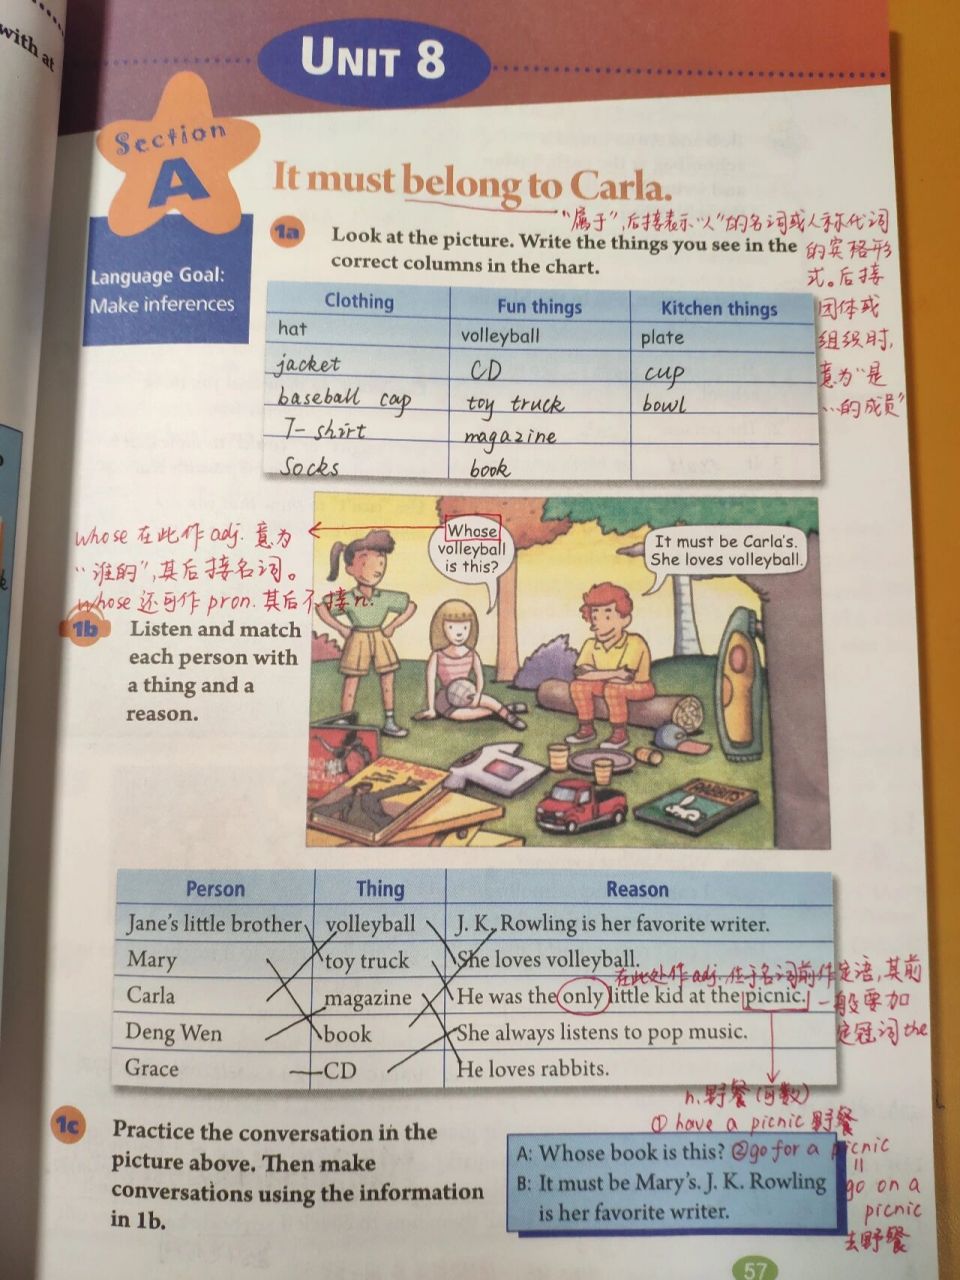 with at
UNIT 8
Section
A
It must belong to Carla.
"属于",后接表示"人"的名词或人称代词
的宾格形
式。后接
团体或
组织时,
意为"是
…的成员"
Language Goal:
Make inferences
1a
Look at the picture. Write the things you see in the
correct columns in the chart.
Clothing Fun things Kitchen things
hat volleyball plate
jacket CD cup
baseball cap toy truck bowl
T-shirt magazine
socks book
whose 在此作 adj. 意为
"谁的",其后接名词。
whose 还可作 pron. 其后不接n.
Whose
volleyball
is this?
It must be Carla's.
She loves volleyball.
RABBITS
1b
Listen and match
each person with
a thing and a
reason.
Person Thing Reason
Jane's little brother volleyball J. K. Rowling is her favorite writer.
Mary toy truck She loves volleyball.
在此处作adj.位于名词前作定语,其前
一般要加
定冠词the
Carla magazine He was the only little kid at the picnic.
Deng Wen book She always listens to pop music.
Grace CD He loves rabbits.
n.野餐(可数)
①have a picnic 野餐
②go for a picnic
=
go on a
picnic
去野餐
1c
Practice the conversation in the
picture above. Then make
conversations using the information
in 1b.
A: Whose book is this?
B: It must be Mary's. J. K. Rowling
is her favorite writer.
57